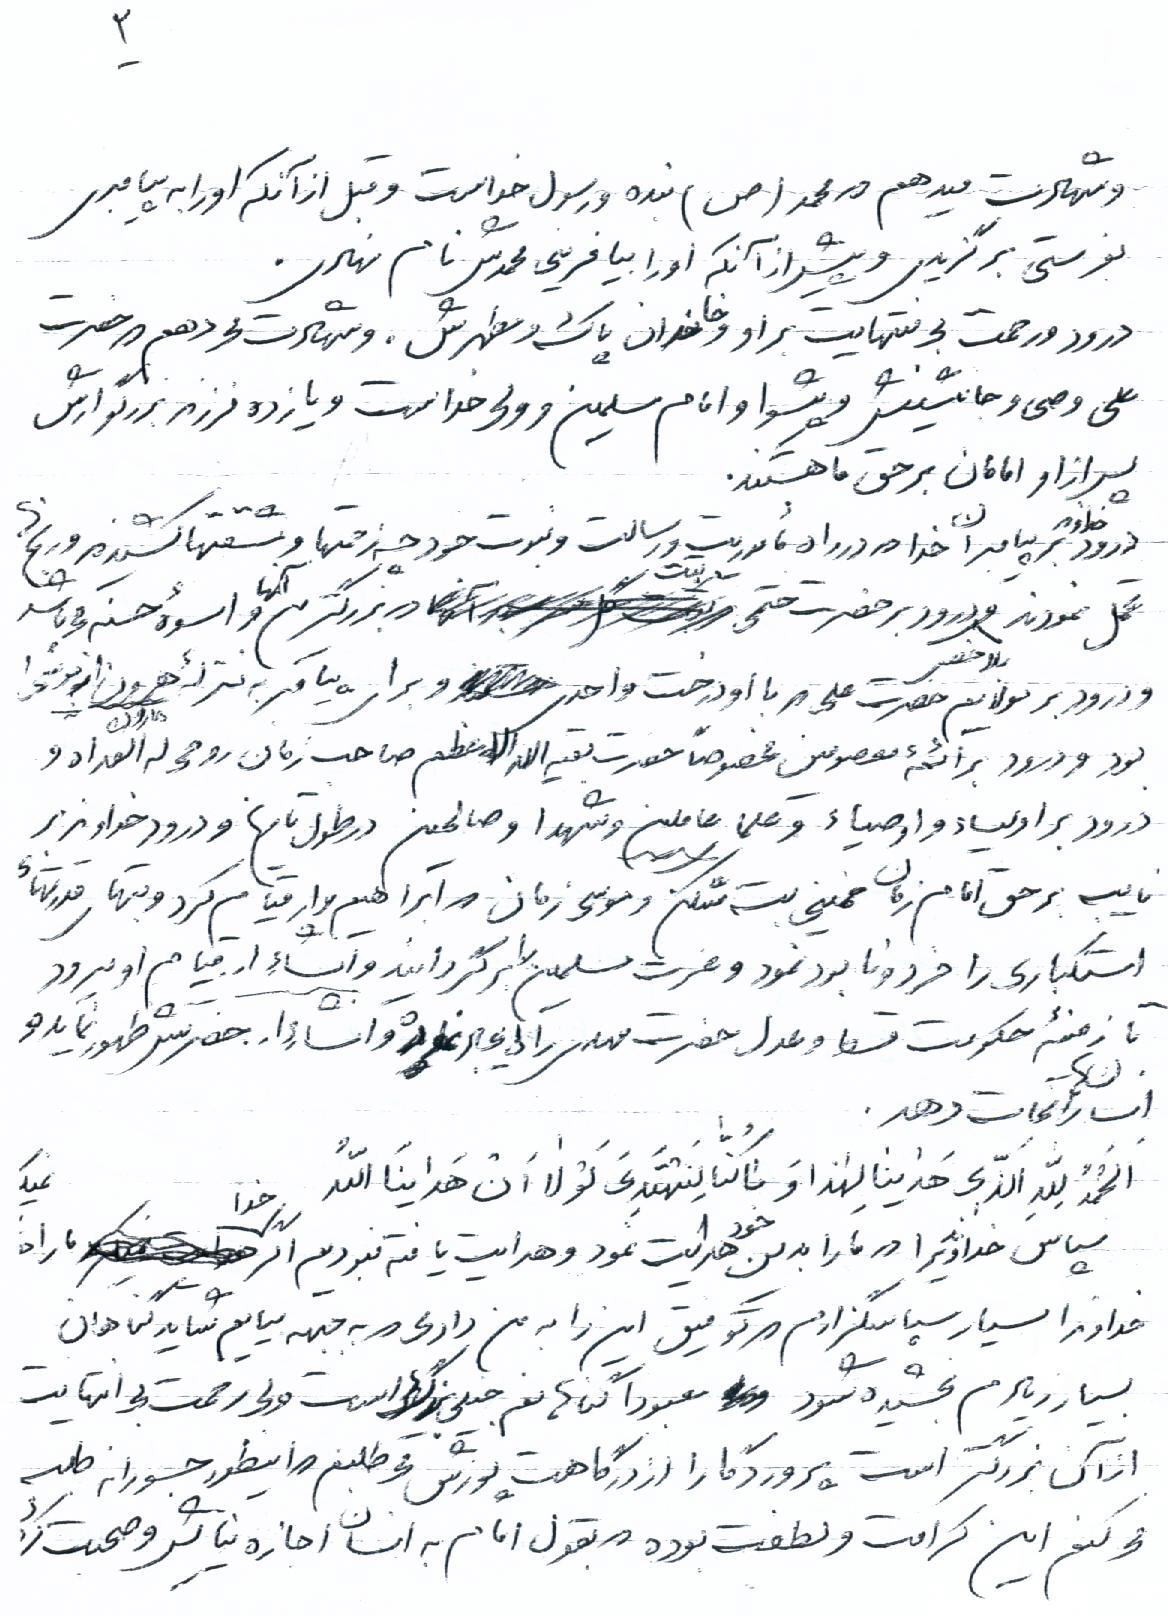 ۳
و شهادت میدهم که محمد (ص) بنده و رسول خداست و قبل از آنکه او را به پیامبری
بفرستی برگزیدی و پیش از آنکه او را بیافرینی محمدش نام نهادی.
درود و رحمت بی منتهایت بر او و خاندان پاک و مطهرش، و شهادت می دهم که حضرت
علی وصی و جانشینش و پیشوا و امام مسلمین و ولی خداست و یازده فرزند بزرگوارش
پس از او امامان بر حق ما هستند.
درود خداوند بر پیامبران خدا که در راه مأموریت و رسالت و نبوت خود چه زحمتها و مشقتها کشیدند و رنجها
تحمل نمودند و درود بر حضرت ختمی مرتبت که بزرگترین آنها و اسوۀ حسنه می باشد
و درود بر مولایم حضرت علی که با او درخت واحدی و برای پیامبر به منزلۀ هارون از موسی
بود و درود بر ائمۀ معصومین مخصوصاً حضرت بقیه الله الاعظم صاحب زمان روحی له الفداه و
درود بر اولیاء و اوصیاء و علما عاملین و شهدا و صالحین در طول تاریخ و درود خداوند بر
نایب بر حق امام زمان خمینی بت شکن و موسی زمان که ابراهیم وار قیام کرد و بتهای قدرتهای
استکباری را خرد و نابود نمود و عزت مسلمین را برگردانید و انشاءا... قیام او میرود
تا زمینۀ حکومت قسط و عدل حضرت مهدی را و انشاءا... حضرتش ظهور نماید و
انسانها را نجات دهد.
اَلحَمْدُ لِلّهِ اَلَّذی هَدٰینا لِهٰذا وَ مٰا کُنّا لِنَهْتَدِیَ لَوْلٰا اَنْ هَدٰینَا اللّهُ
سپاس خداوندی را که ما را بدین خود هدایت نمود و هدایت یافته نبودیم اگر خدا ما را
خداوندا بسیار سپاسگزارم که توفیق این را به من دادی که به جبهه بیایم شاید گناهان
بسیار زیادم بخشیده شود معبودا گناهانم خیلی بزرگ است ولی رحمت بی انتهایت
از آن بزرگتر است پروردگارا از درگاهت پوزش می طلبم که اینطور جسورانه طلب
می کنم این کرامت و لطفت بوده که بقول امام به انسان اجازه نیایش و صحبت